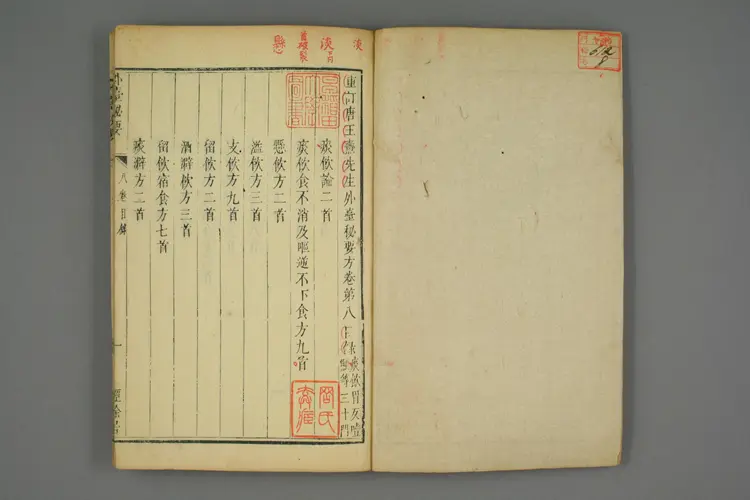 重訂唐王燾先生外臺秘要方卷第八
痰飲胃反噎
等三十門
痰飲論二首
痰飲食不消及嘔逆不下食方九首
懸飲方二首
溢飲方三首
支飲方九首
留飲方二首
酒澼飲方三首
留飲宿食方七首
痰澼方二首
外臺秘要
八卷目錄
一
經餘居